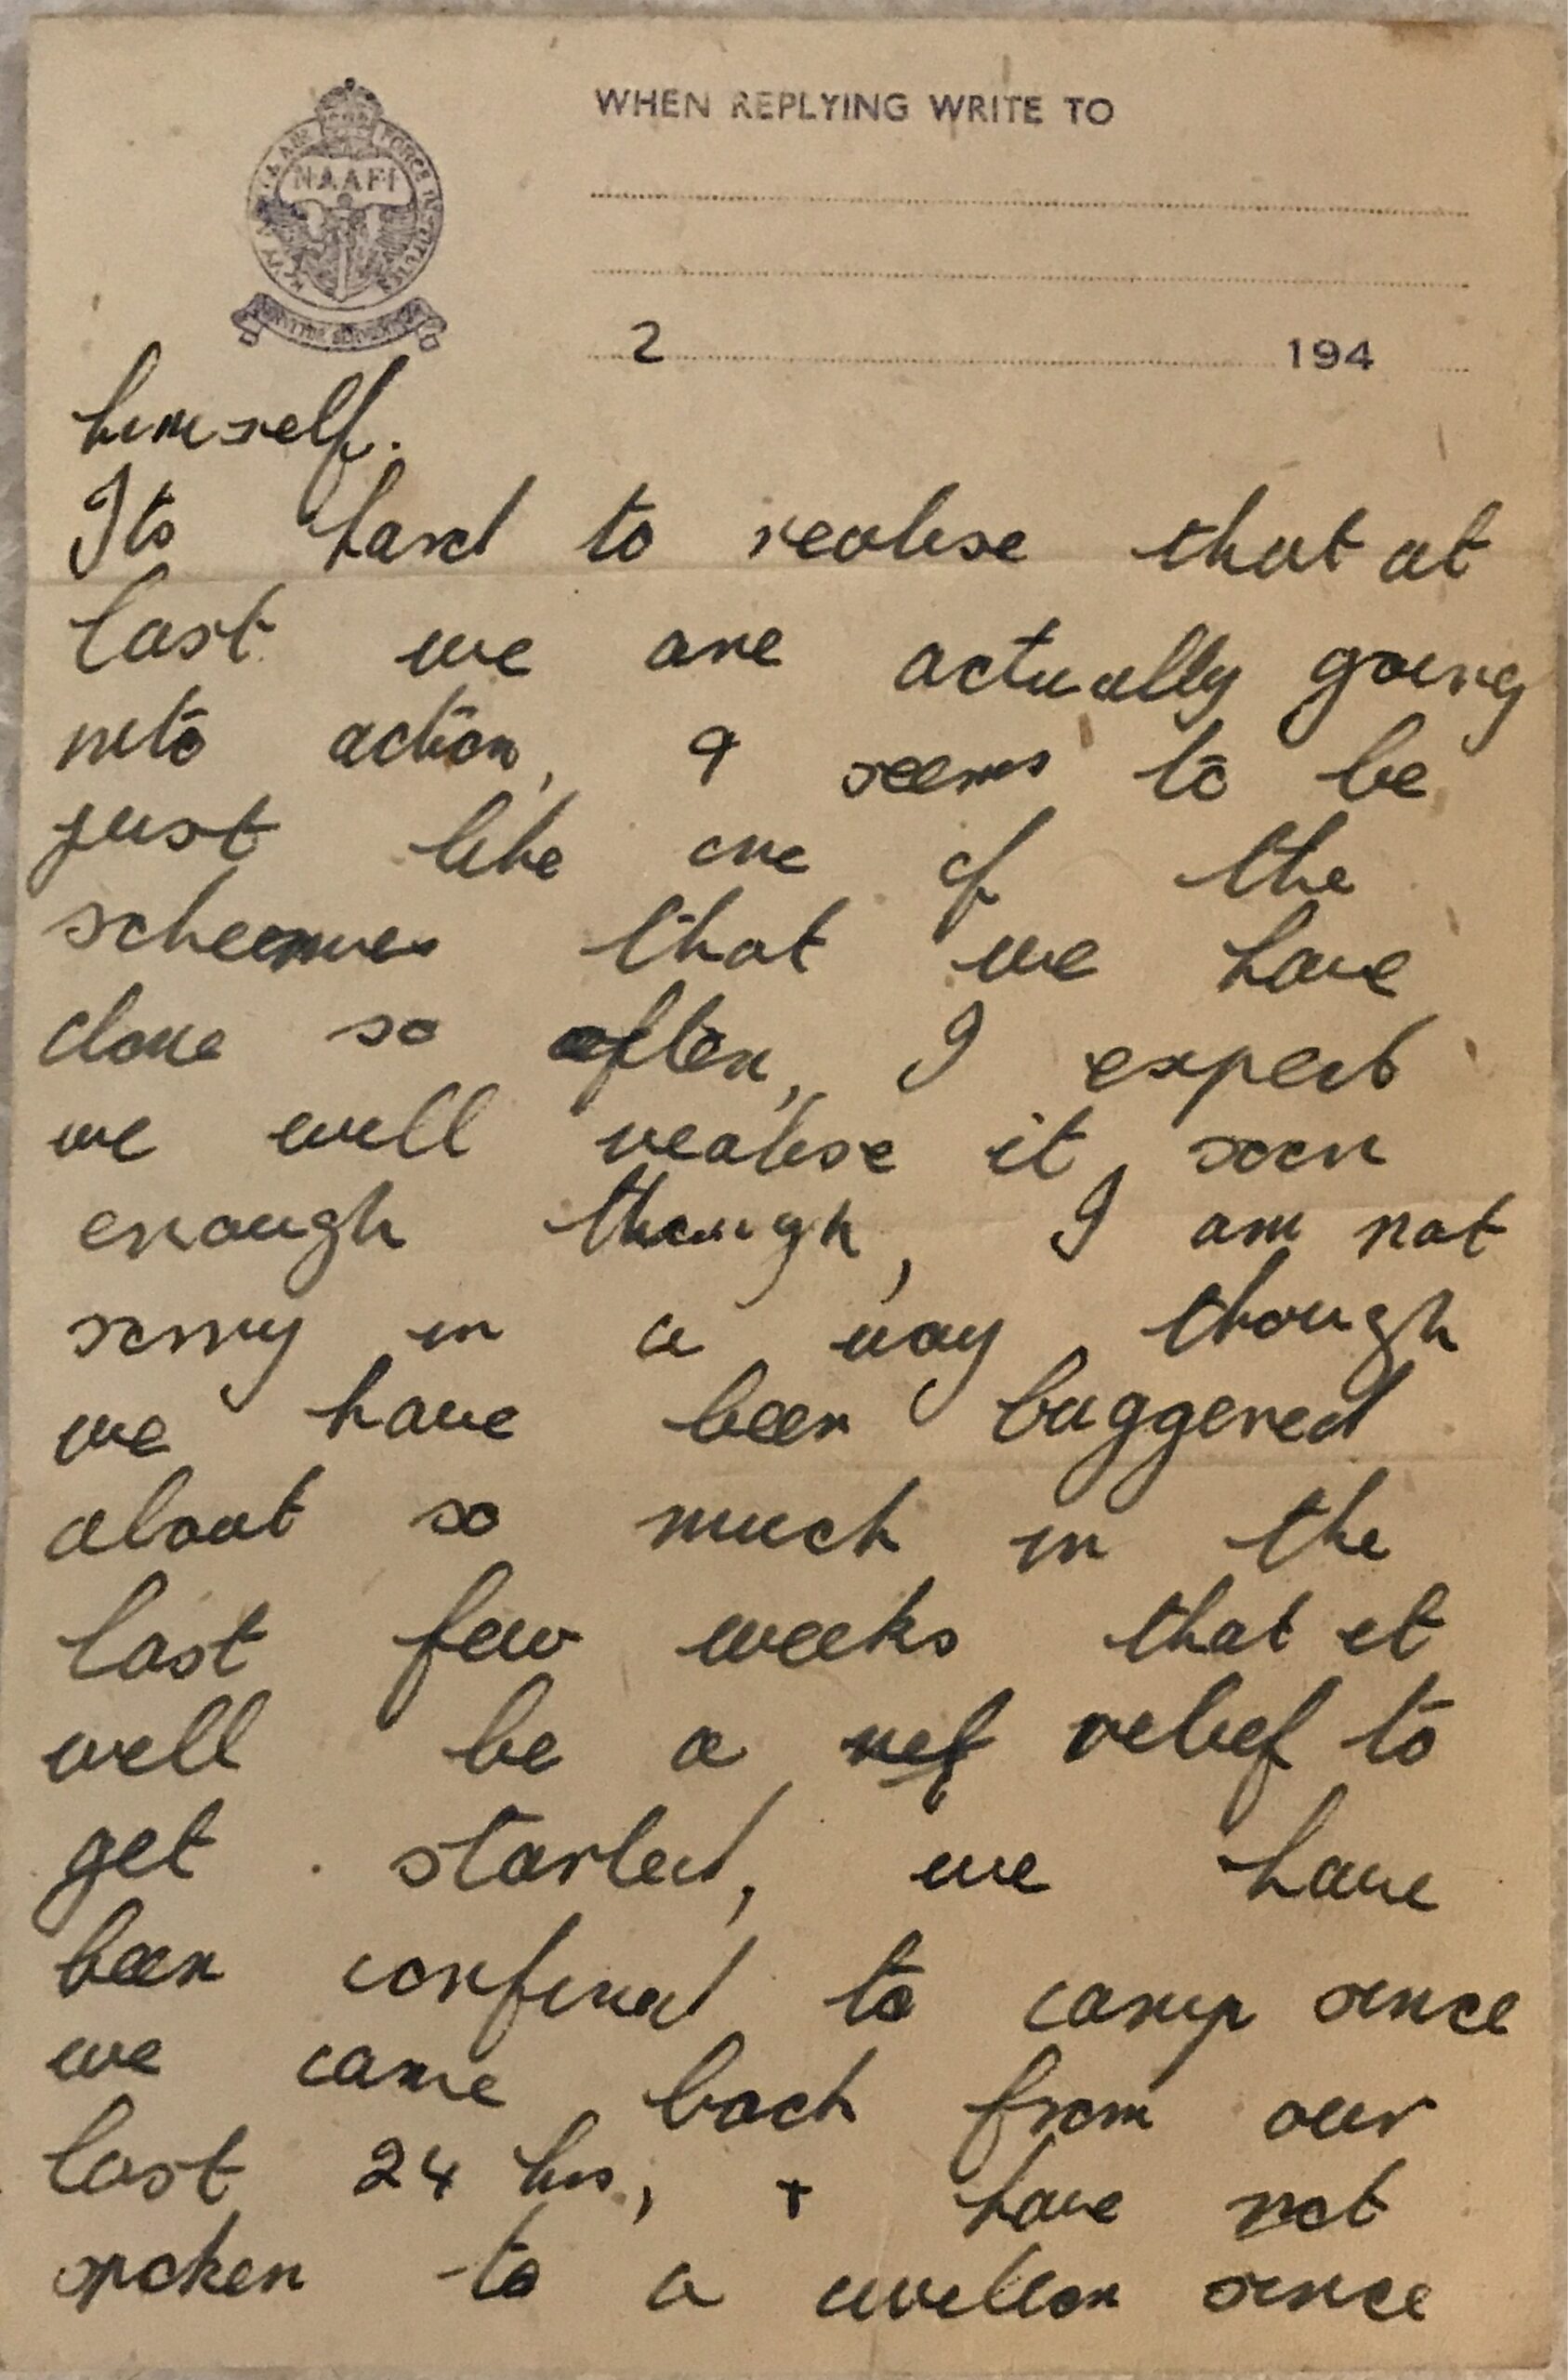 WHEN REPLYING WRITE TO
NAVY ARMY & AIR FORCE INSTITUTES
NAAFI
2 194
himself.
Its hard to realise that at
last we are actually going
into action, & seems to be
just like one of the
scheemes that we have
done so often, I expect
we will realise it soon
enough though, I am not
sorry in a way though
we have been buggered
about so much in the
last few weeks that it
will be a relief to
get started, we have
been confined to camp since
we came back from our
last 24 hrs, + have not
spoken to a civilian since